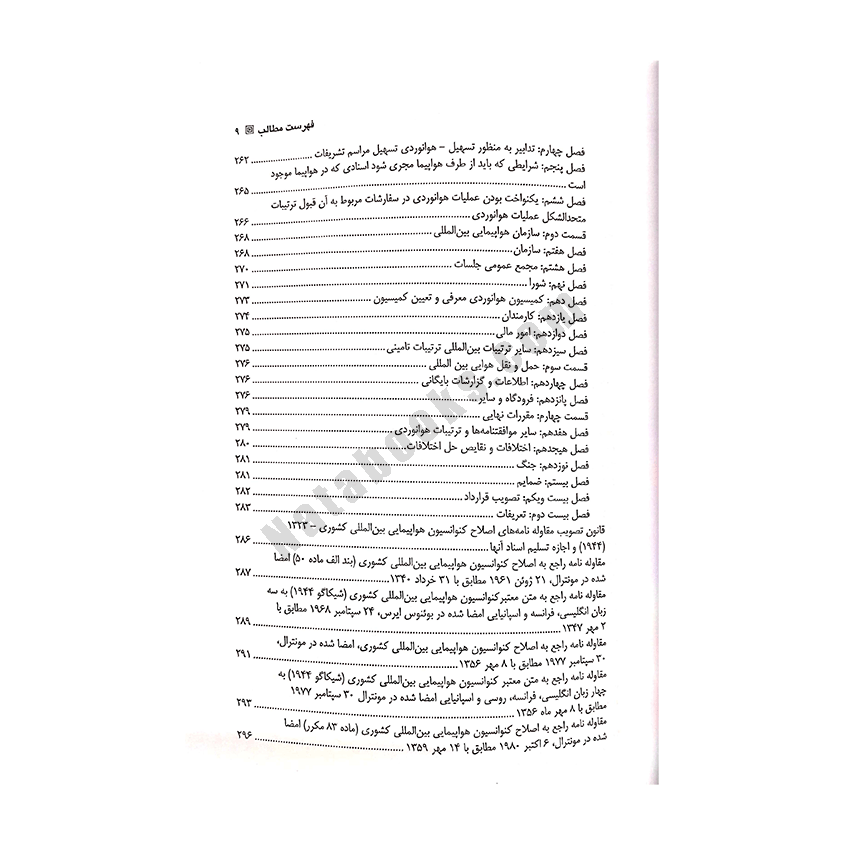 فهرست مطالب ۹
فصل چهارم: تدابیر به منظور تسهیل – هوانوردی تسهیل مراسم تشریفات ۲۶۲
فصل پنجم: شرایطی که باید از طرف هواپیما مجری شود اسنادی که در هواپیما موجود
است ۲۶۵
فصل ششم: یکنواخت بودن عملیات هوانوردی در سفارشات مربوط به آن قبول ترتیبات
متحدالشکل عملیات هوانوردی ۲۶۶
قسمت دوم: سازمان هواپیمایی بین‌المللی ۲۶۸
فصل هفتم: سازمان ۲۶۸
فصل هشتم: مجمع عمومی جلسات ۲۷۰
فصل نهم: شورا ۲۷۱
فصل دهم: کمیسیون هوانوردی معرفی و تعیین کمیسیون ۲۷۳
فصل یازدهم: کارمندان ۲۷۴
فصل دوازدهم: امور مالی ۲۷۵
فصل سیزدهم: سایر ترتیبات بین‌المللی ترتیبات تامینی ۲۷۵
قسمت سوم: حمل و نقل هوایی بین المللی ۲۷۶
فصل چهاردهم: اطلاعات و گزارشات بایگانی ۲۷۶
فصل پانزدهم: فرودگاه و سایر ۲۷۶
قسمت چهارم: مقررات نهایی ۲۷۹
فصل هفدهم: سایر موافقتنامه‌ها و ترتیبات هوانوردی ۲۷۹
فصل هیجدهم: اختلافات و نقایص حل اختلافات ۲۸۰
فصل نوزدهم: جنگ ۲۸۱
فصل بیستم: ضمایم ۲۸۱
فصل بیست ویکم: تصویب قرارداد ۲۸۲
فصل بیست دوم: تعریفات ۲۸۳
قانون تصویب مقاوله نامه‌های اصلاح کنوانسیون هواپیمایی بین‌المللی کشوری – ۱۳۲۳
(۱۹۴۴) و اجازه تسلیم اسناد آنها ۲۸۶
مقاوله نامه راجع به اصلاح کنوانسیون هواپیمایی بین‌المللی کشوری (بند الف ماده ۵۰) امضا
شده در مونترال، ۲۱ ژوئن ۱۹۶۱ مطابق با ۳۱ خرداد ۱۳۴۰ ۲۸۷
مقاوله نامه راجع به متن معتبر کنوانسیون هواپیمایی بین‌المللی کشوری (شیکاگو ۱۹۴۴) به سه
زبان انگلیسی، فرانسه و اسپانیایی امضا شده در بوئنوس ایرس، ۲۴ سپتامبر ۱۹۶۸ مطابق با
۲ مهر ۱۳۴۷ ۲۸۹
مقاوله نامه راجع به اصلاح کنوانسیون هواپیمایی بین‌المللی کشوری، امضا شده در مونترال،
۳۰ سپتامبر ۱۹۷۷ مطابق با ۸ مهر ۱۳۵۶ ۲۹۱
مقاوله نامه راجع به متن معتبر کنوانسیون هواپیمایی بین‌المللی کشوری (شیکاگو ۱۹۴۴) به
چهار زبان انگلیسی، فرانسه، روسی و اسپانیایی امضا شده در مونترال ۳۰ سپتامبر ۱۹۷۷
مطابق با ۸ مهر ماه ۱۳۵۶ ۲۹۳
مقاوله نامه راجع به اصلاح کنوانسیون هواپیمایی بین‌المللی کشوری (ماده ۸۳ مکرر) امضا
شده در مونترال، ۶ اکتبر ۱۹۸۰ مطابق با ۱۴ مهر ۱۳۵۹ ۲۹۶
Natabooks.com